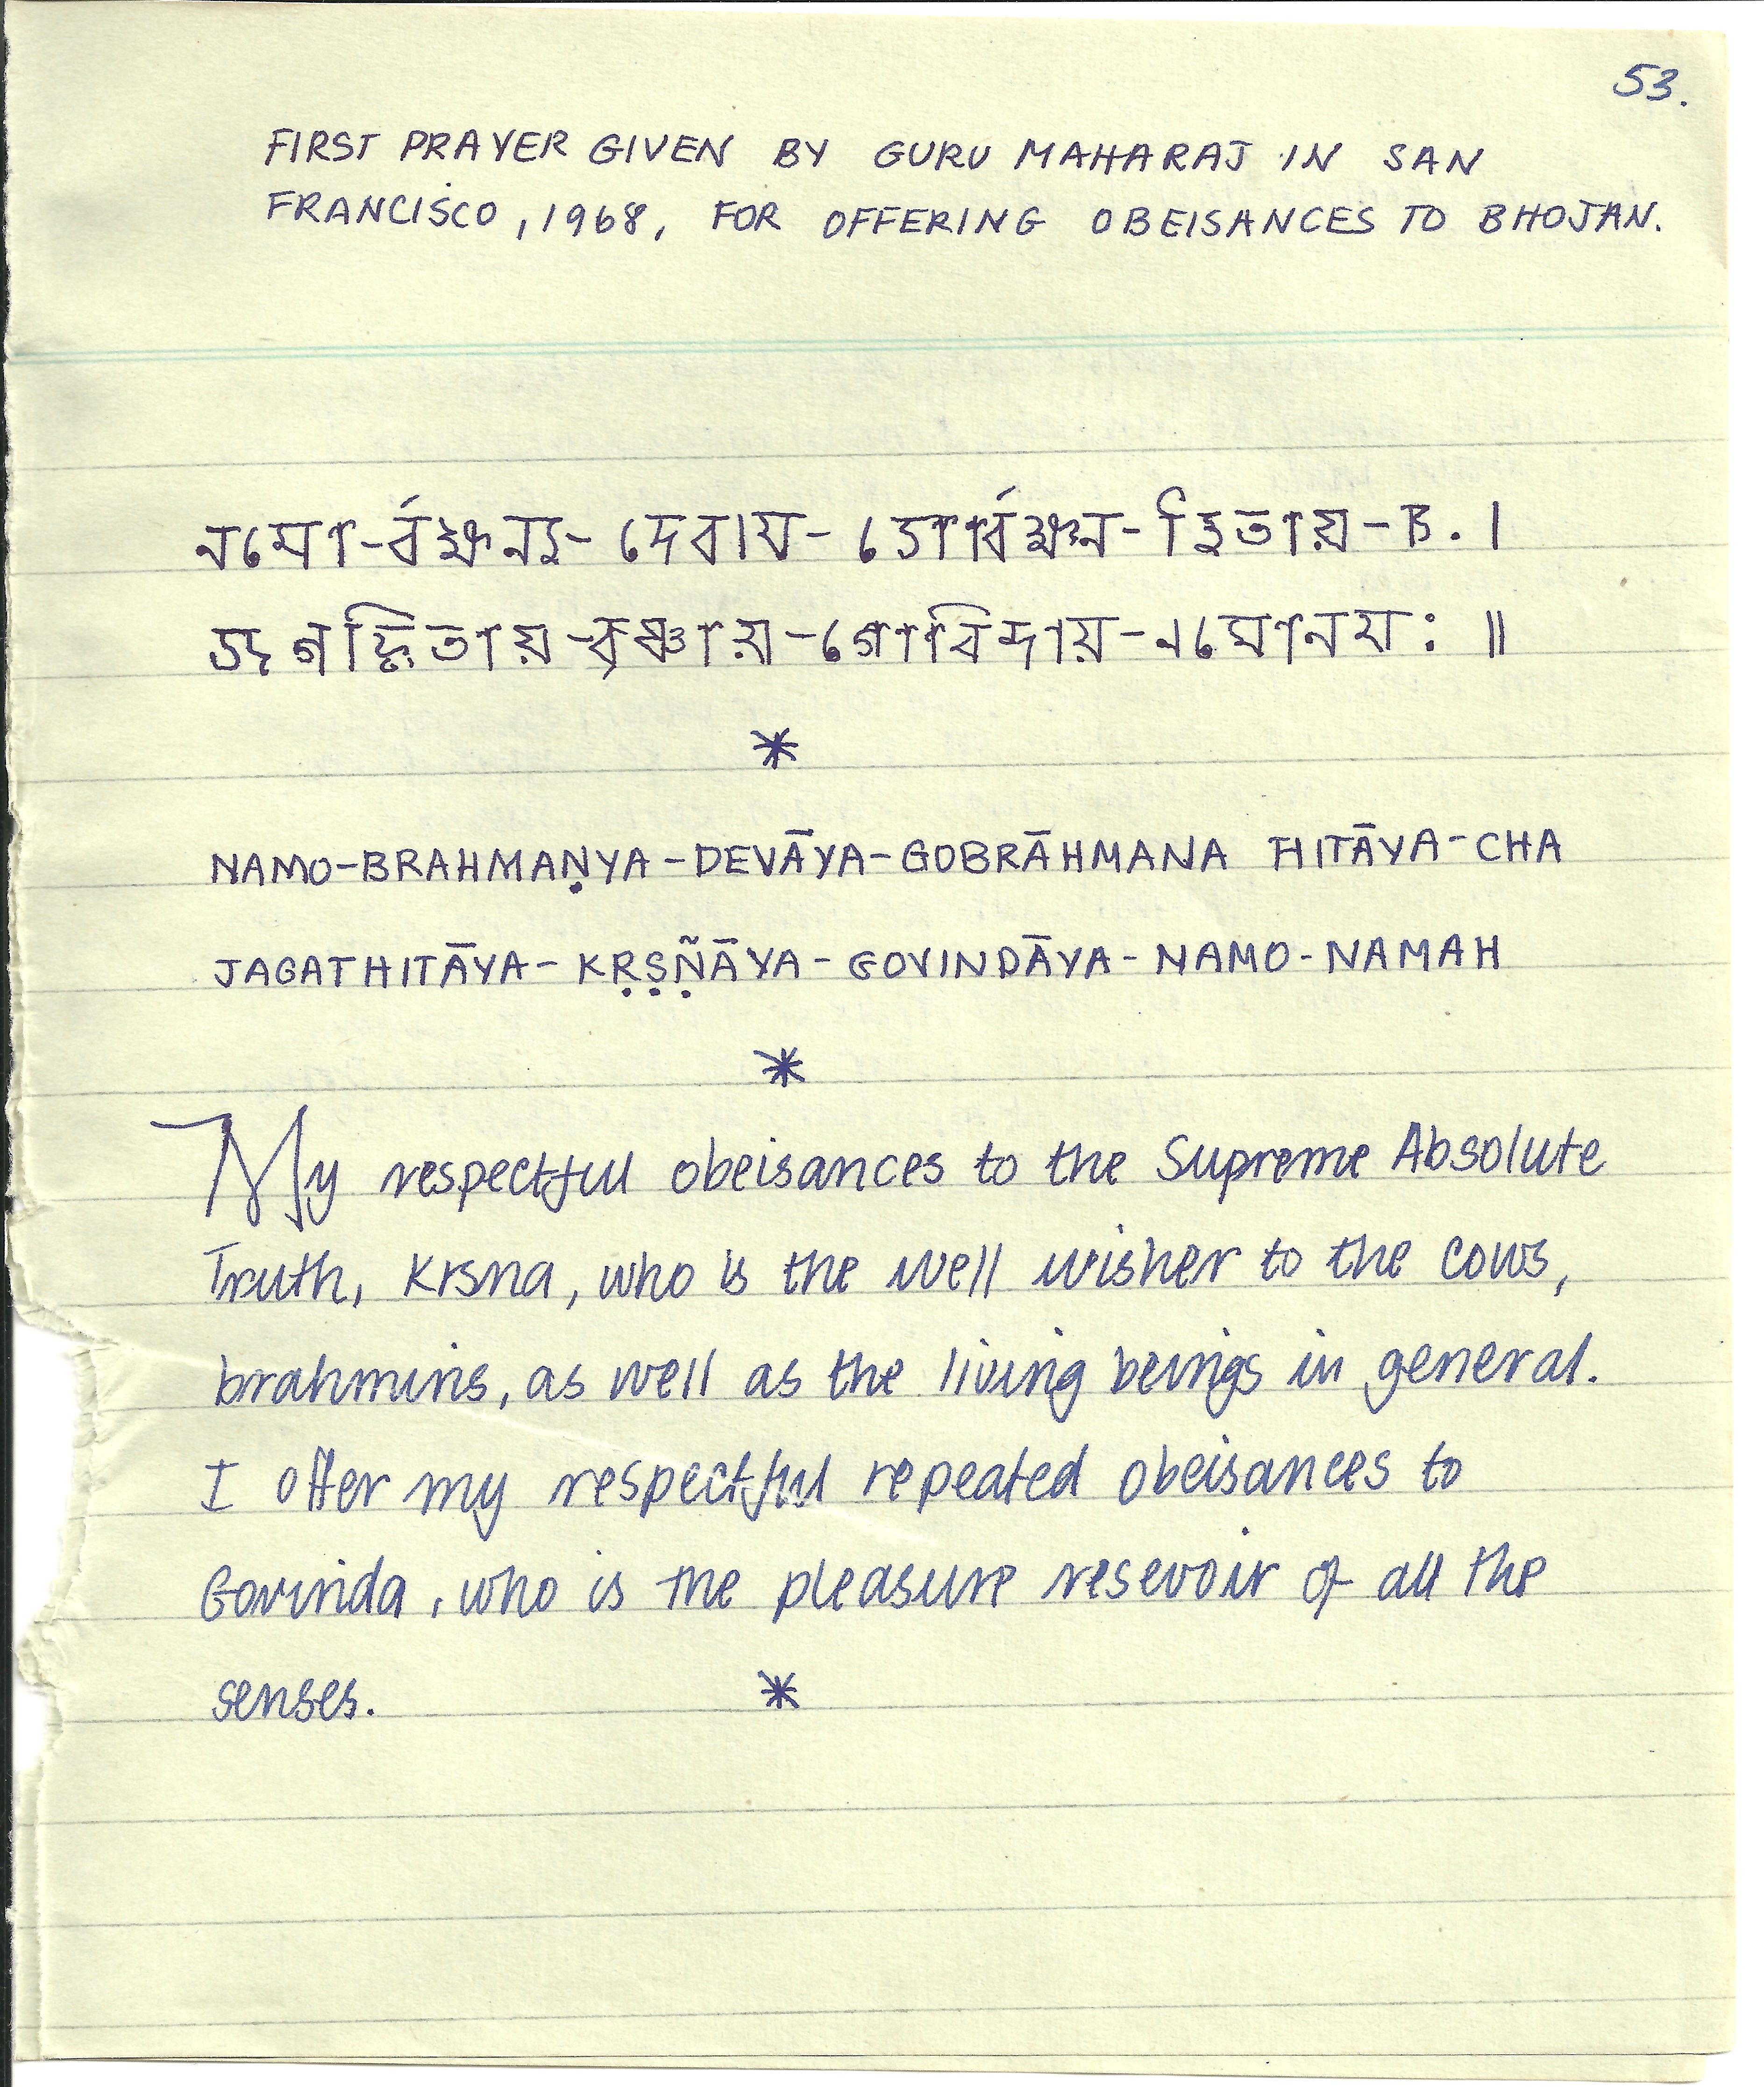 53.
FIRST PRAYER GIVEN BY GURU MAHARAJ IN SAN
FRANCISCO, 1968, FOR OFFERING OBEISANCES TO BHOJAN.
নমো - - দেবায় - - হিতায় - চ. ।
- কৃষ্ণায় - গোবিন্দায় - নমোনমঃ ॥
*
NAMO-BRAHMAṆYA-DEVĀYA-GOBRĀHMANA HITĀYA-CHA
JAGATHITĀYA-KṚṢṆ̃ĀYA-GOVINDĀYA-NAMO-NAMAH
*
My respectful obeisances to the Supreme Absolute
Truth, Krsna, who is the well wisher to the cows,
brahmins, as well as the living beings in general.
I offer my respectful repeated obeisances to
Govinda, who is the pleasure resevoir of all the
senses. *